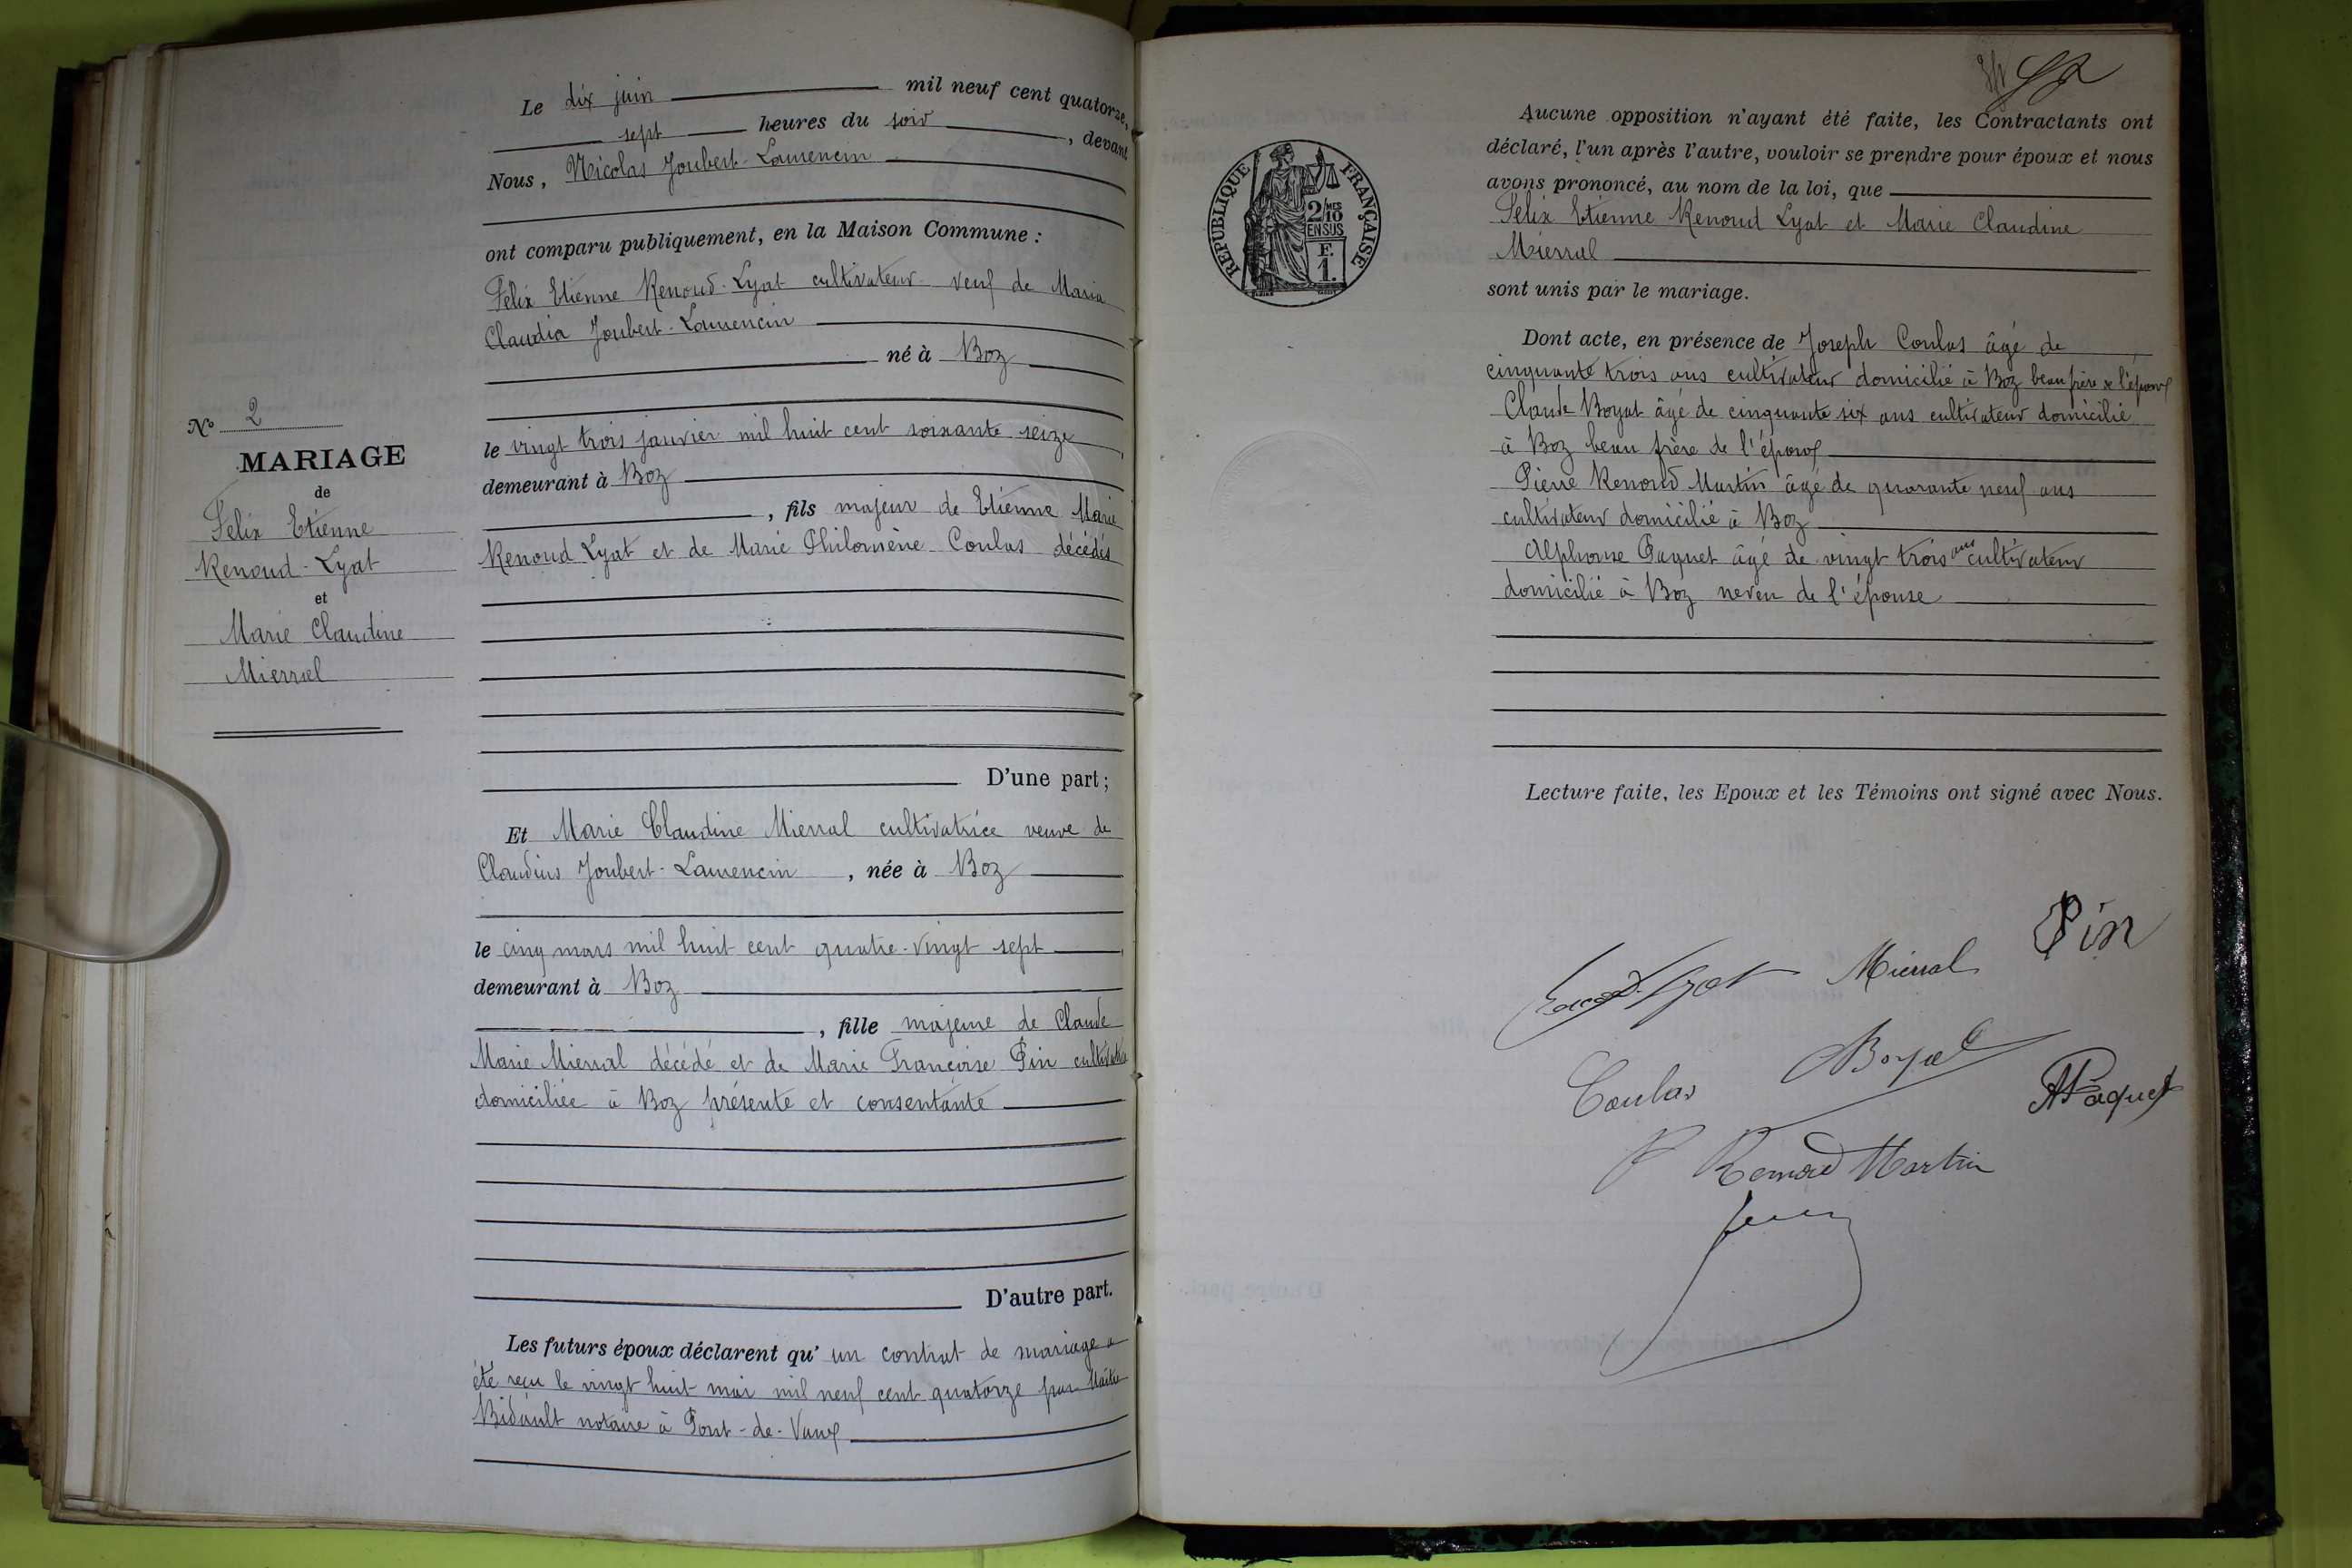 N° 2
MARIAGE
de
Félix Etienne
Renoud-Lyat
et
Marie Claudine
Mierral
Le dix juin mil neuf cent quatorze,
sept heures du soir, devant
Nous, Nicolas Joubert-Laurencin
ont comparu publiquement, en la Maison Commune :
Félix Etienne Renoud-Lyat cultivateur veuf de Maria
Claudia Joubert-Laurencin
né à Boz
le vingt trois janvier mil huit cent soixante seize,
demeurant à Boz
, fils majeur de Etienne Marie
Renoud Lyat et de Marie Philomène Coulas décédés
D'une part ;
Et Marie Claudine Mierral cultivatrice veuve de
Claudius Joubert-Laurencin, née à Boz
le cinq mars mil huit cent quatre-vingt sept,
demeurant à Boz
, fille majeure de Claude
Marie Mierral décédé et de Marie Françoise Pin cultivatrice
domiciliée à Boz présente et consentante
D'autre part.
Les futurs époux déclarent qu' un contrat de mariage a
été reçu le vingt huit mai mil neuf cent quatorze par Maître
Bidault notaire à Pont-de-Vaux
REPUBLIQUE FRANÇAISE
2/10
MES
EN SUS
F.
1.
Aucune opposition n'ayant été faite, les Contractants ont
déclaré, l'un après l'autre, vouloir se prendre pour époux et nous
avons prononcé, au nom de la loi, que
Félix Etienne Renoud Lyat et Marie Claudine
Mierral
sont unis par le mariage.
Dont acte, en présence de Joseph Coulas âgé de
cinquante trois ans cultivateur domicilié à Boz beau frère de l'époux
Claude Boyat âgé de cinquante six ans cultivateur domicilié
à Boz beau frère de l'époux
Pierre Renoud Martin âgé de quarante neuf ans
cultivateur domicilié à Boz
Alphonse Paquet âgé de vingt trois ans cultivateur
domicilié à Boz neveu de l'épouse
Lecture faite, les Epoux et les Témoins ont signé avec Nous.
Renoud-Lyat Mierral Pin
Coulas Boyat APaquet
P Renoud Martin